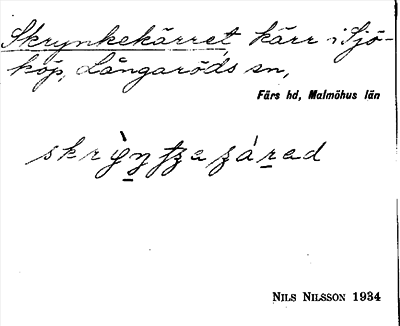 Skrynkekärret, kärr i Sjö-
köp, Långaröds sn,
Färs hd, Malmöhus län
NILS NILSSON 1934